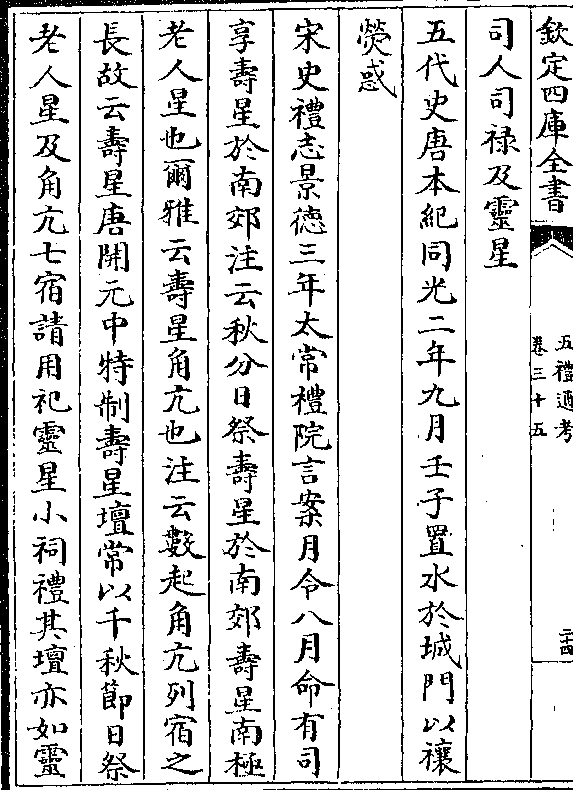 欽定四庫全書
五禮通考
卷三十五
二十四
司人司祿及靈星
五代史唐本紀同光二年九月壬子置水於城門以禳
熒惑
宋史禮志景德三年太常禮院言案月令八月命有司
享壽星於南郊注云秋分日祭壽星於南郊壽星南極
老人星也爾雅云壽星角亢也注云數起角亢列宿之
長故云壽星唐開元中特制壽星壇常以千秋節日祭
老人星及角亢七宿請用祀靈星小祠禮其壇亦如靈